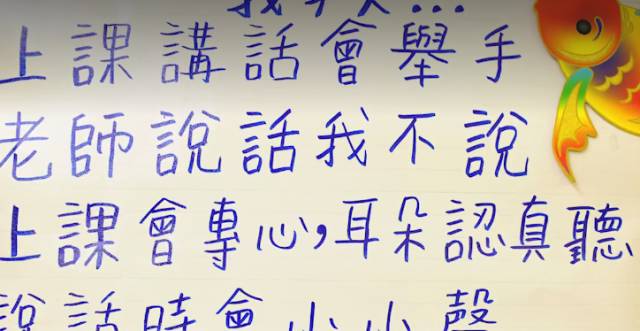 上課講話會舉手
老師說話我不說
上課會專心,耳朵認真聽
說話時會小小聲